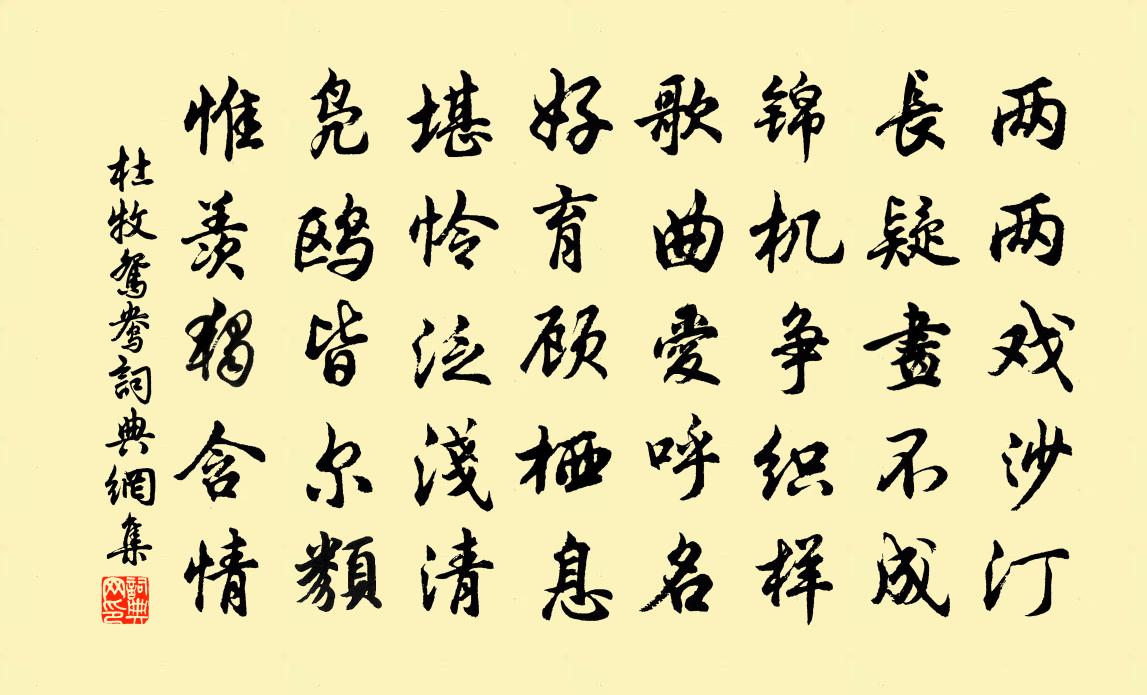 两两戏沙汀
長疑畫不成
锦机争织样
歌曲愛呼名
好育顾栖息
堪怜泛淺清
凫鸥皆尔類
惟羡独含情
杜牧鴛鴦詞典網集
詞典网印